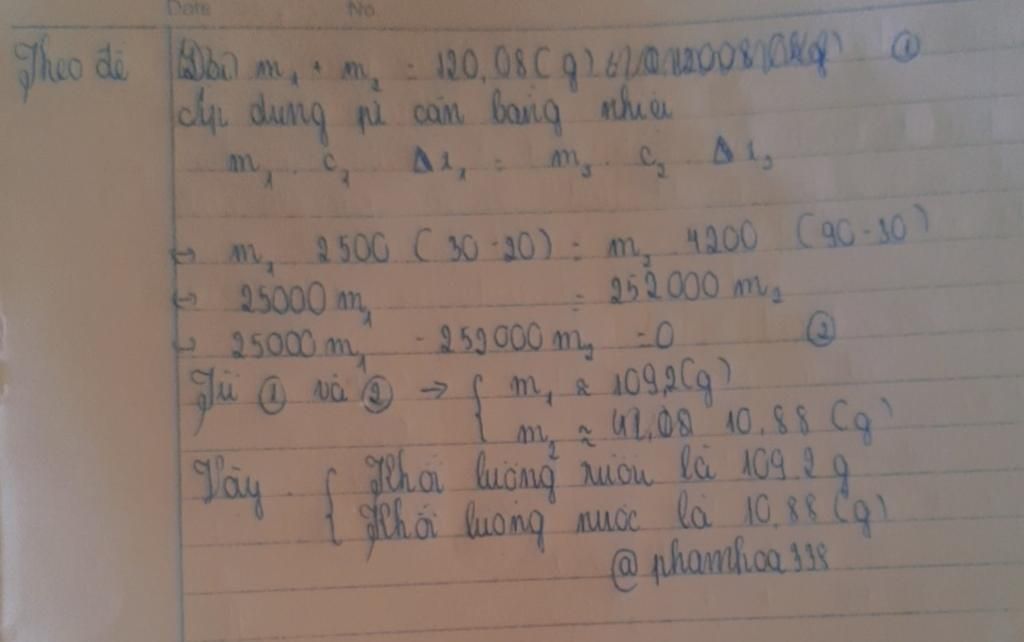 Date No
Theo đề m₁ + m₂ = 120,08 (g) ①
Áp dụng pt cân bằng nhiệt
m₁ . c₁ . Δt₁ = m₂ . c₂ . Δt₂
↔ m₁ 2500 (30 - 20) = m₂ 4200 (90 - 30)
↔ 25000 m₁ = 252000 m₂
↔ 25000 m₁ - 252000 m₂ = 0 ②
Từ ① và ② → { m₁ ≈ 109,2 (g)
m₂ ≈ 10.88 (g)
Vậy { Khối lượng rượu là 109.2 g
Khối lượng nước là 10,88 (g)
@phamhoa338